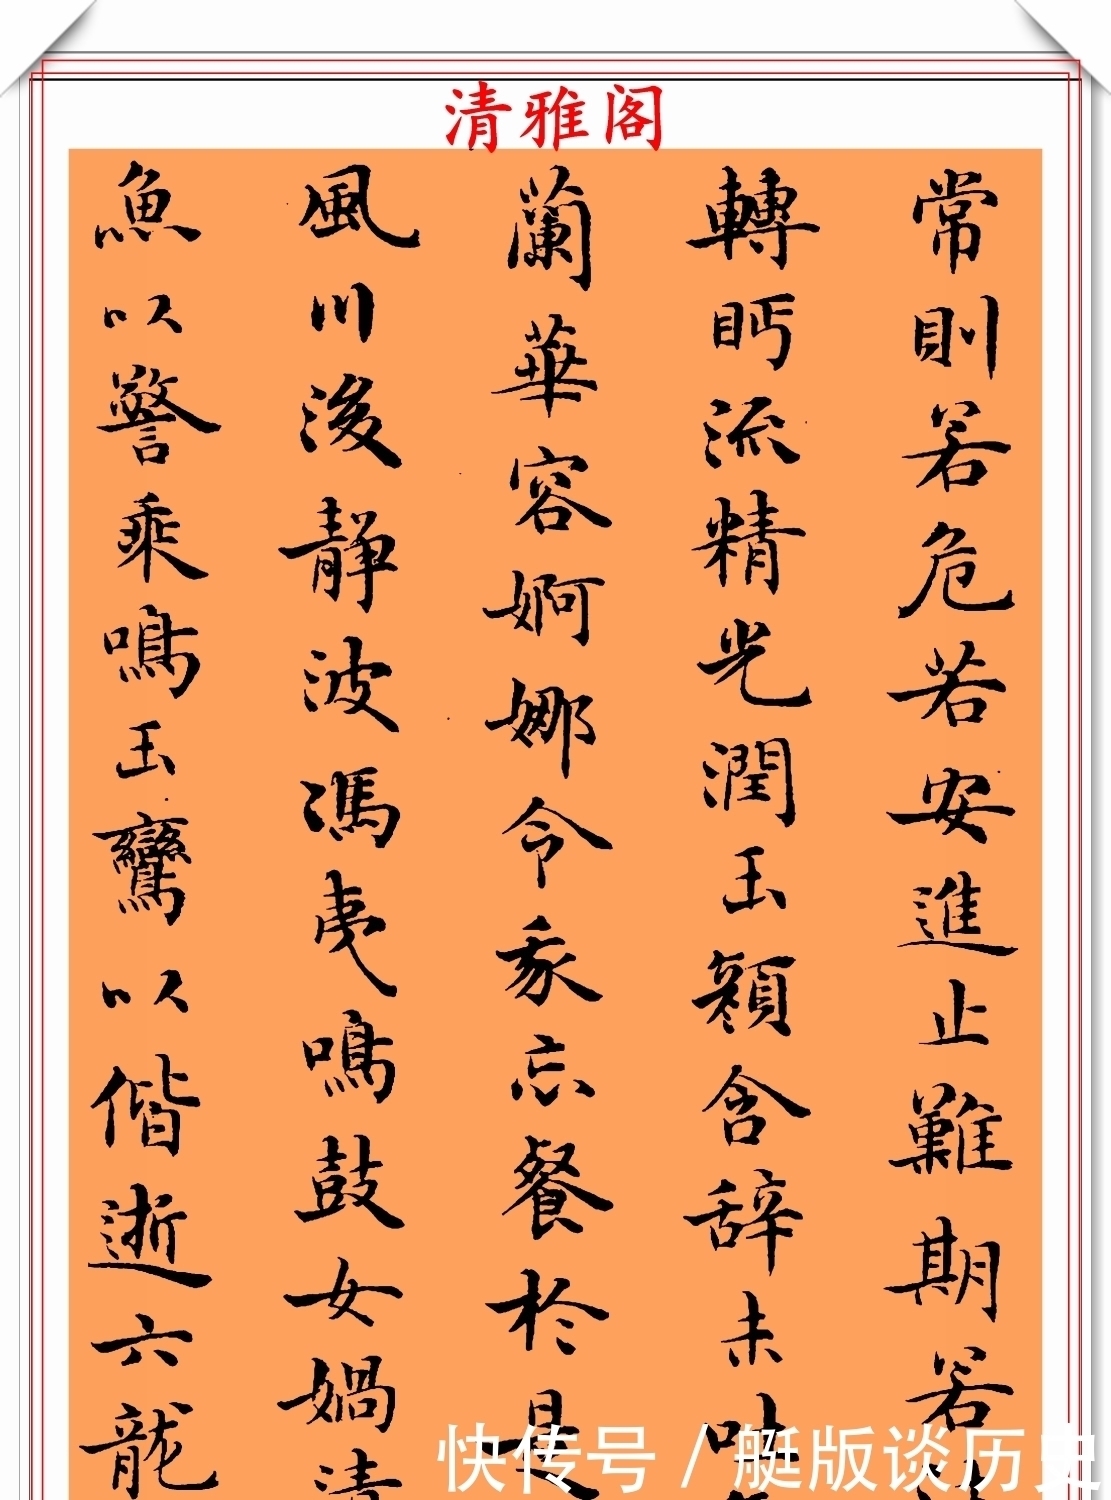 清雅阁
常則若危若安進止難期若
轉眄流精光潤玉顏含辞未吐
蘭華容婀娜令我忘餐於是
風川後静波馮夷鳴鼓女媧清
魚以警乘鳴玉鸞以偕逝六龍
快传号／艇版谈历史